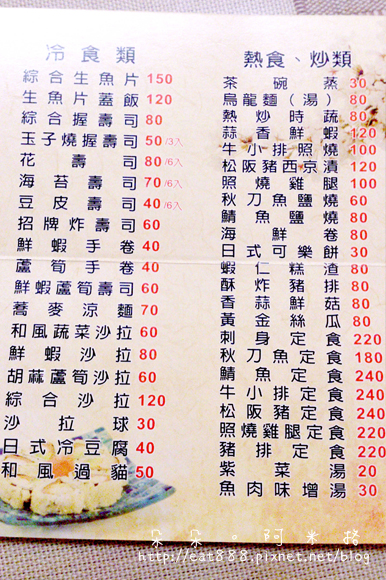 冷食類
綜合生魚片 150
生魚片蓋飯 120
綜合握壽司 80
玉子燒握壽司 50/3入
花壽司 80/6入
海苔壽司 70/6入
豆皮壽司 40/6入
招牌炸壽司 60
鮮蝦手卷 40
蘆筍手卷 40
鮮蝦蘆筍壽司 60
蕎麥涼麵 70
和風蔬菜沙拉 60
鮮蝦沙拉 80
胡麻蘆筍沙拉 60
綜合沙拉 120
沙拉球 30
日式冷豆腐 40
和風過貓 50
熱食、炒類
茶碗蒸 30
烏龍麵(湯) 80
熱炒時蔬 80
蒜香鮮蝦 120
牛小排照燒 100
松阪豬西京漬 120
照燒雞腿 100
秋刀魚鹽燒 60
鯖魚鹽燒 80
海鮮卷 80
日式可樂餅 30
蝦仁糕渣 80
酥炸豬排 80
香蒜鮮菇 80
黃金絲瓜 80
刺身定食 220
秋刀魚定食 180
鯖魚定食 240
牛小排定食 240
松阪豬定食 240
照燒雞腿定食 220
豬排定食 220
紫菜湯 20
魚肉味增湯 30
朵朵。阿米格
http://eat888.pixnet.net/blog